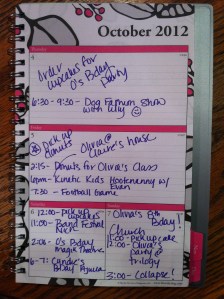 October 2012
Order
cupcakes for
O's Bday
party
6:30 - 9:30 - Dog Fashion Show
with Lily
pick up
donuts
Olivia @
Claire's house
2:15 - Donuts for Olivia's Class
6pm - Kinetic Kids Hootenanny w/
Evan
7:30 - Football Game
12:00 - pick up
cupcakes
11:00 - Band Festival
2:00 - O's Bday
6-7:
Bday
7 Olivia's 8th
Bday!
Church
1:00 pick up cake
2:00 Olivia's
party @
3:00 - Collapse!